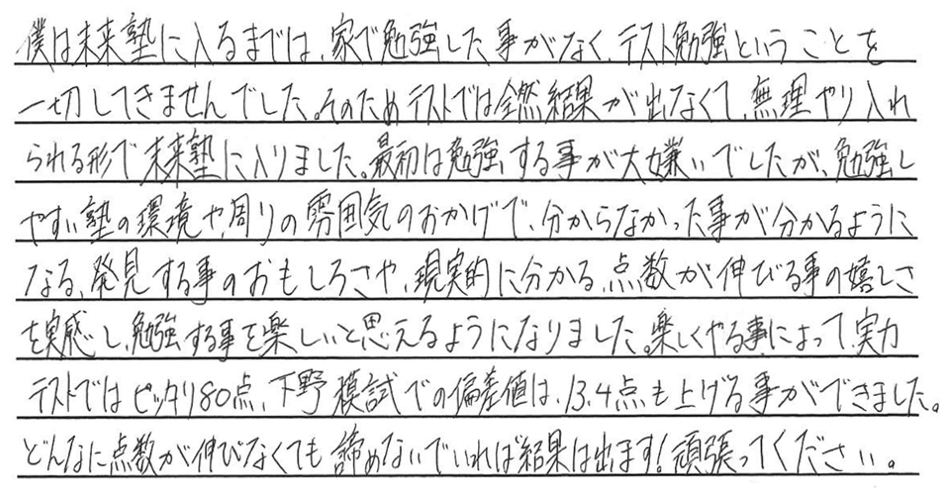 僕は未来塾に入るまでは、家で勉強した事がなく、テスト勉強ということを
一切してきませんでした。そのためテストでは全然結果が出なくて、無理やり入れ
られる形で未来塾に入りました。最初は勉強する事が大嫌いでしたが、勉強し
やすい塾の環境や周りの雰囲気のおかげで、分からなかった事が分かるように
なる、発見する事のおもしろさや、現実的に分かる、点数が伸びる事の嬉しさ
を実感し、勉強する事を楽しいと思えるようになりました。楽しくやる事によって、実力
テストではピッタリ80点、下野模試での偏差値は、13.4点も上げる事ができました。
どんなに点数が伸びなくても諦めないでいれば結果は出ます!頑張ってください。